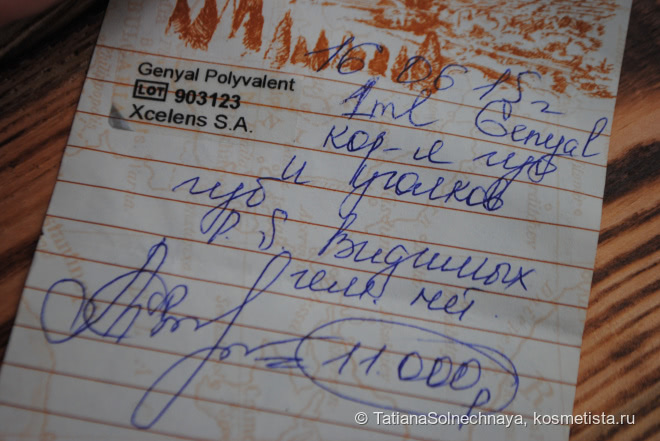 Genyal Polyvalent
LOT 903123
Xcelens S.A.
16 06 15г
1ml Genyal
кор-я губ
и уголков
губ
P.S. Видимых
гем. нет.
11.000р
© TatianaSolnechnaya, kosmetista.ru